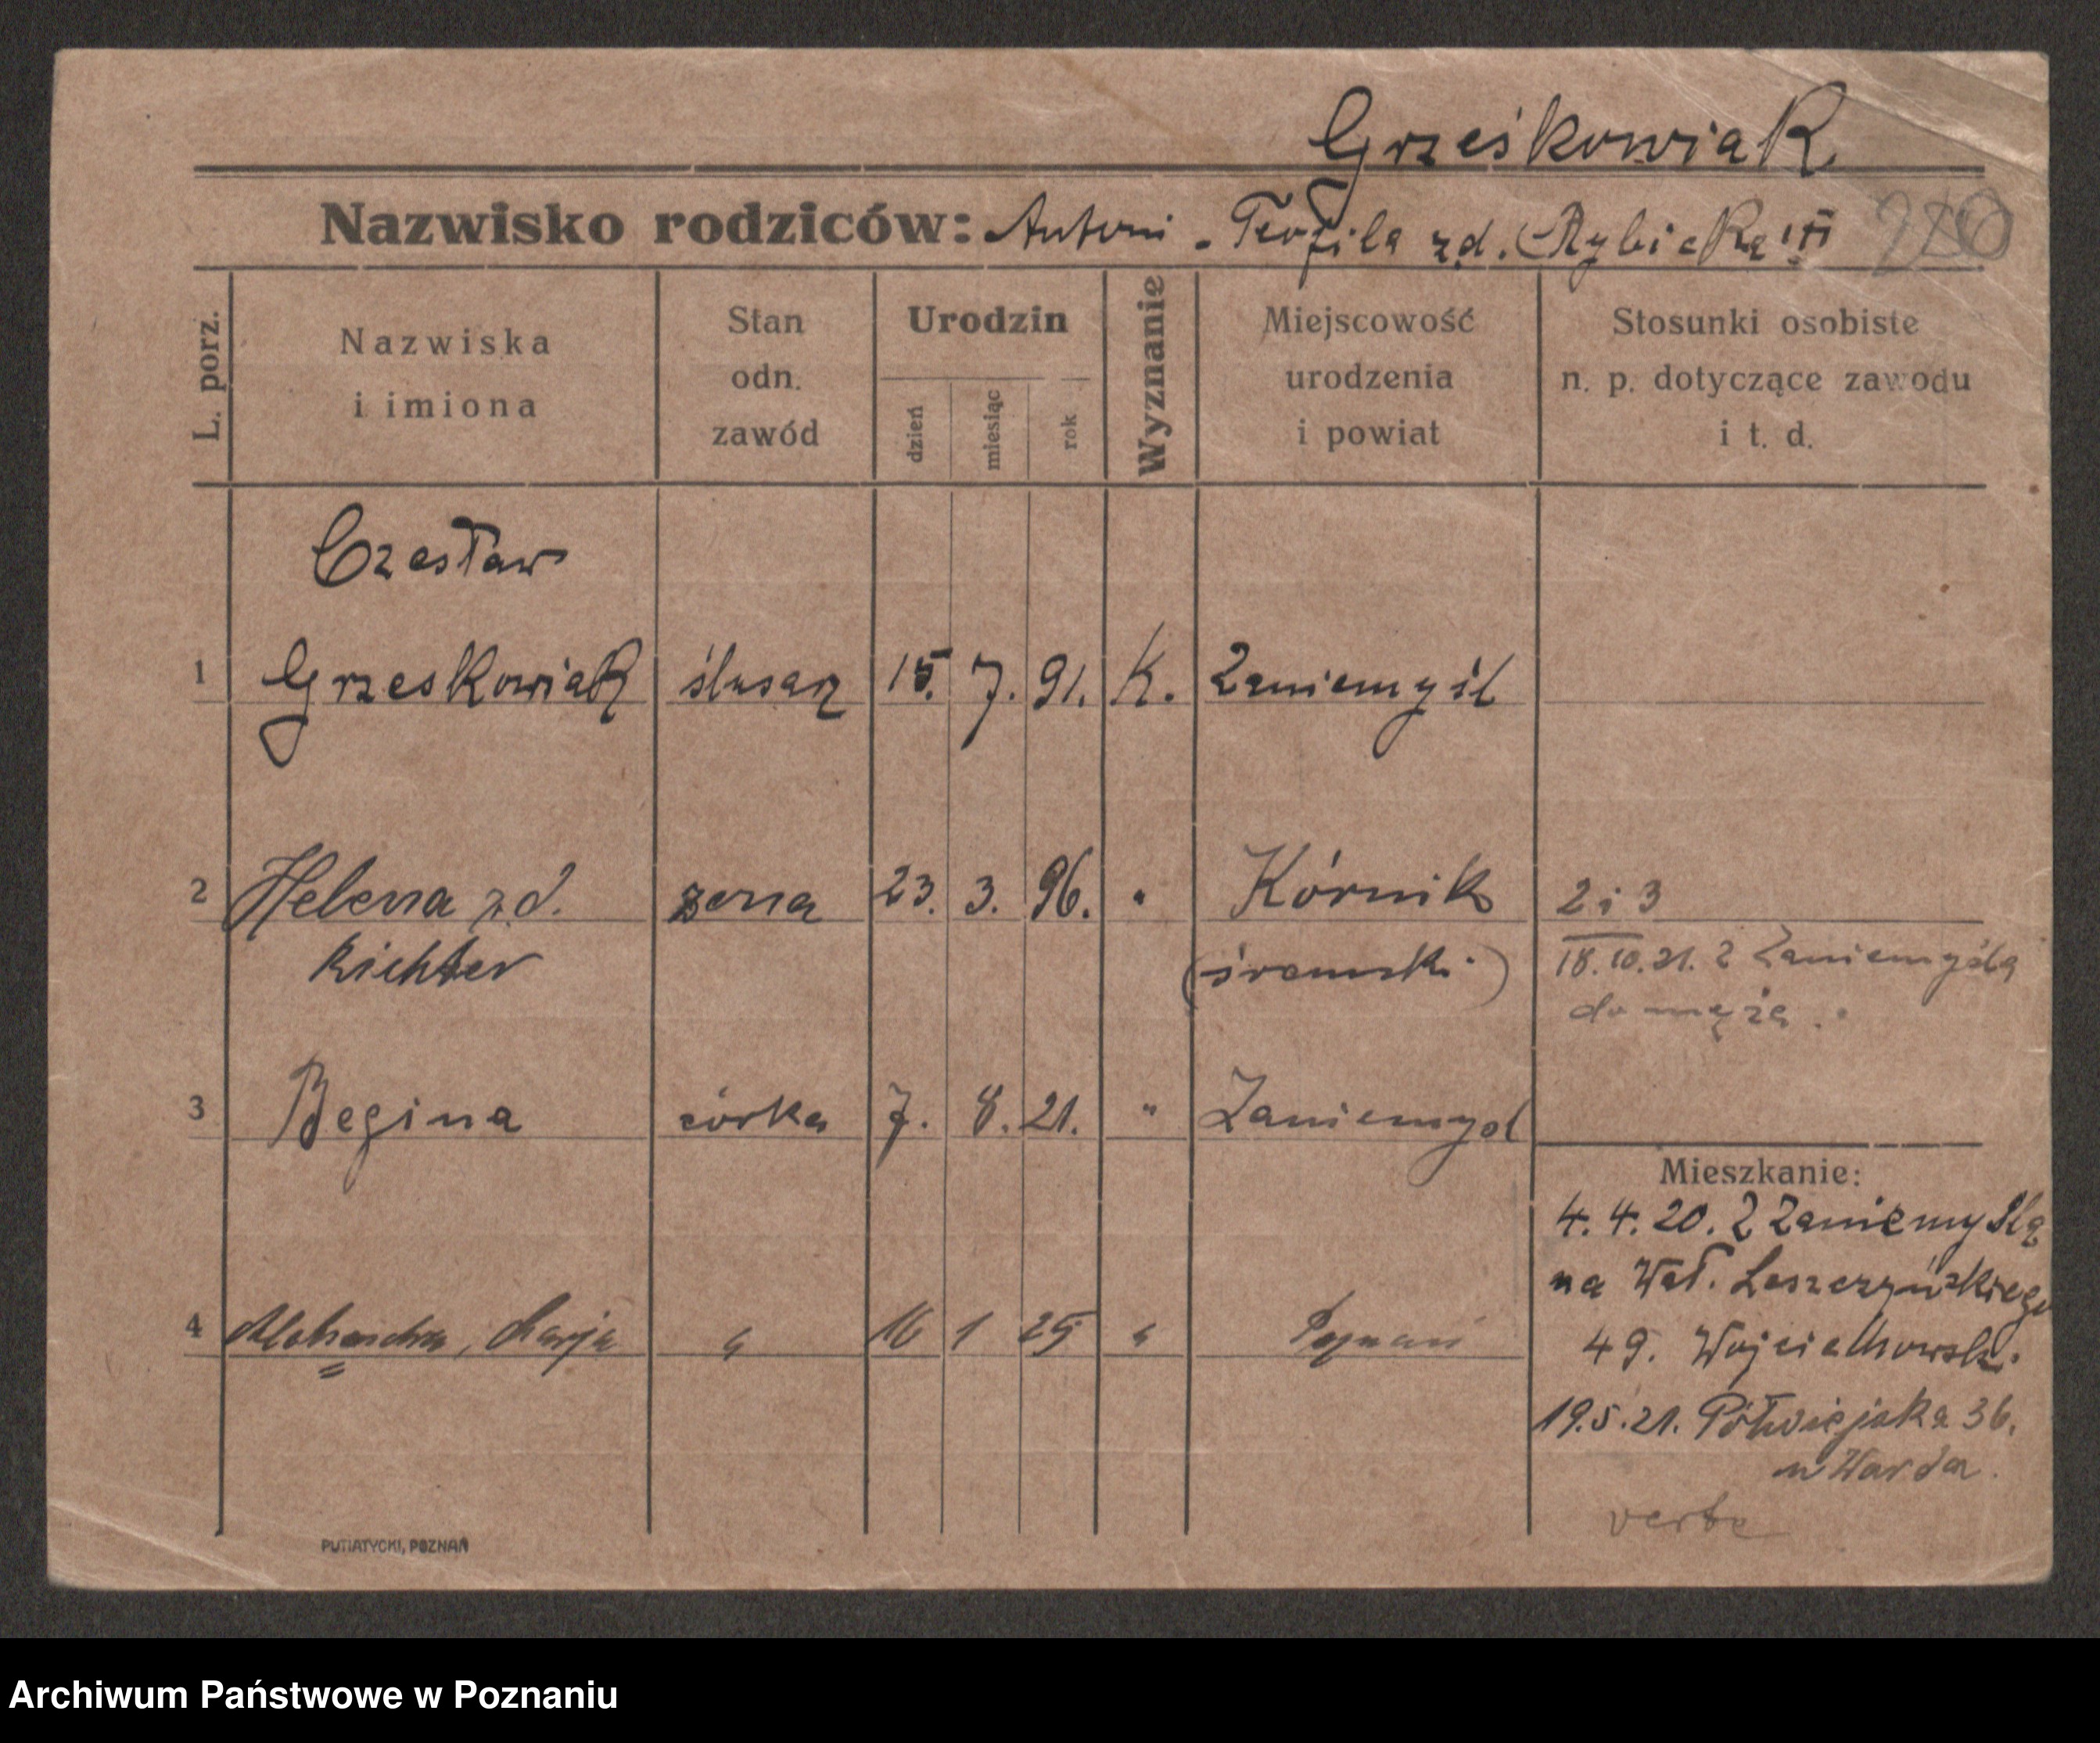 Grześkowiak
Nazwisko rodziców: Antoni - Teofila z d. Rybicka
L. porz.
Nazwiska
i imiona
Stan
odn.
zawód
Urodzin
dzień
miesiąc
rok
Wyznanie
Miejscowość
urodzenia
i powiat
Stosunki osobiste
n. p. dotyczące zawodu
i t. d.
Czesław
1 Grzeskowiak ślusarz 15. 7. 91. K. Zaniemyśl
2 Helena z d. żona 23. 3. 96. " Kórnik 2 i 3
Richter (śremski) 18.10.21. z Zaniemyśla
do męża.
3 Regina córka 7. 8. 21. " Zaniemyśl
Mieszkanie:
4. 4. 20. z Zaniemyśla
na Wał. Leszczyńskiego
4 Aleksandra, Marja " 16 1 25 " Poznań
49. Wojciechowski.
19.5.21. Półwiejska 36.
u Warda.
verte
PUTIATYCKI, POZNAŃ
Archiwum Państwowe w Poznaniu